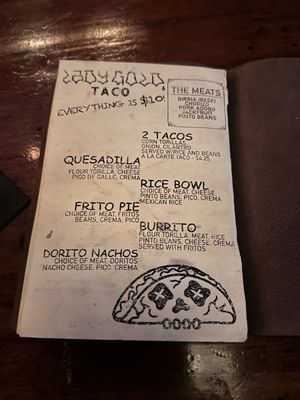 LADY GOLD
TACO
EVERYTHING IS $10!
THE MEATS
BIRRIA (BEEF)
CHORIZO
PORK ADOBO
JACKFRUIT
PINTO BEANS
2 TACOS
CORN TORTILLAS,
ONION, CILANTRO
SERVED W/RICE AND BEANS
A LA CARTE TACO - $4.25
QUESADILLA
CHOICE OF MEAT,
FLOUR TORTILLA, CHEESE
PICO DE GALLO, CREMA
RICE BOWL
CHOICE OF MEAT, CHEESE
PINTO BEANS, PICO, CREMA
MEXICAN RICE
FRITO PIE
CHOICE OF MEAT, FRITOS
BEANS, CREMA, PICO
BURRITO
FLOUR TORILLA, MEAT, RICE
PINTO BEANS, CHEESE, CREMA
SERVED WITH FRITOS
DORITO NACHOS
CHOICE OF MEAT, DORITOS
NACHO CHEESE, PICO, CREMA